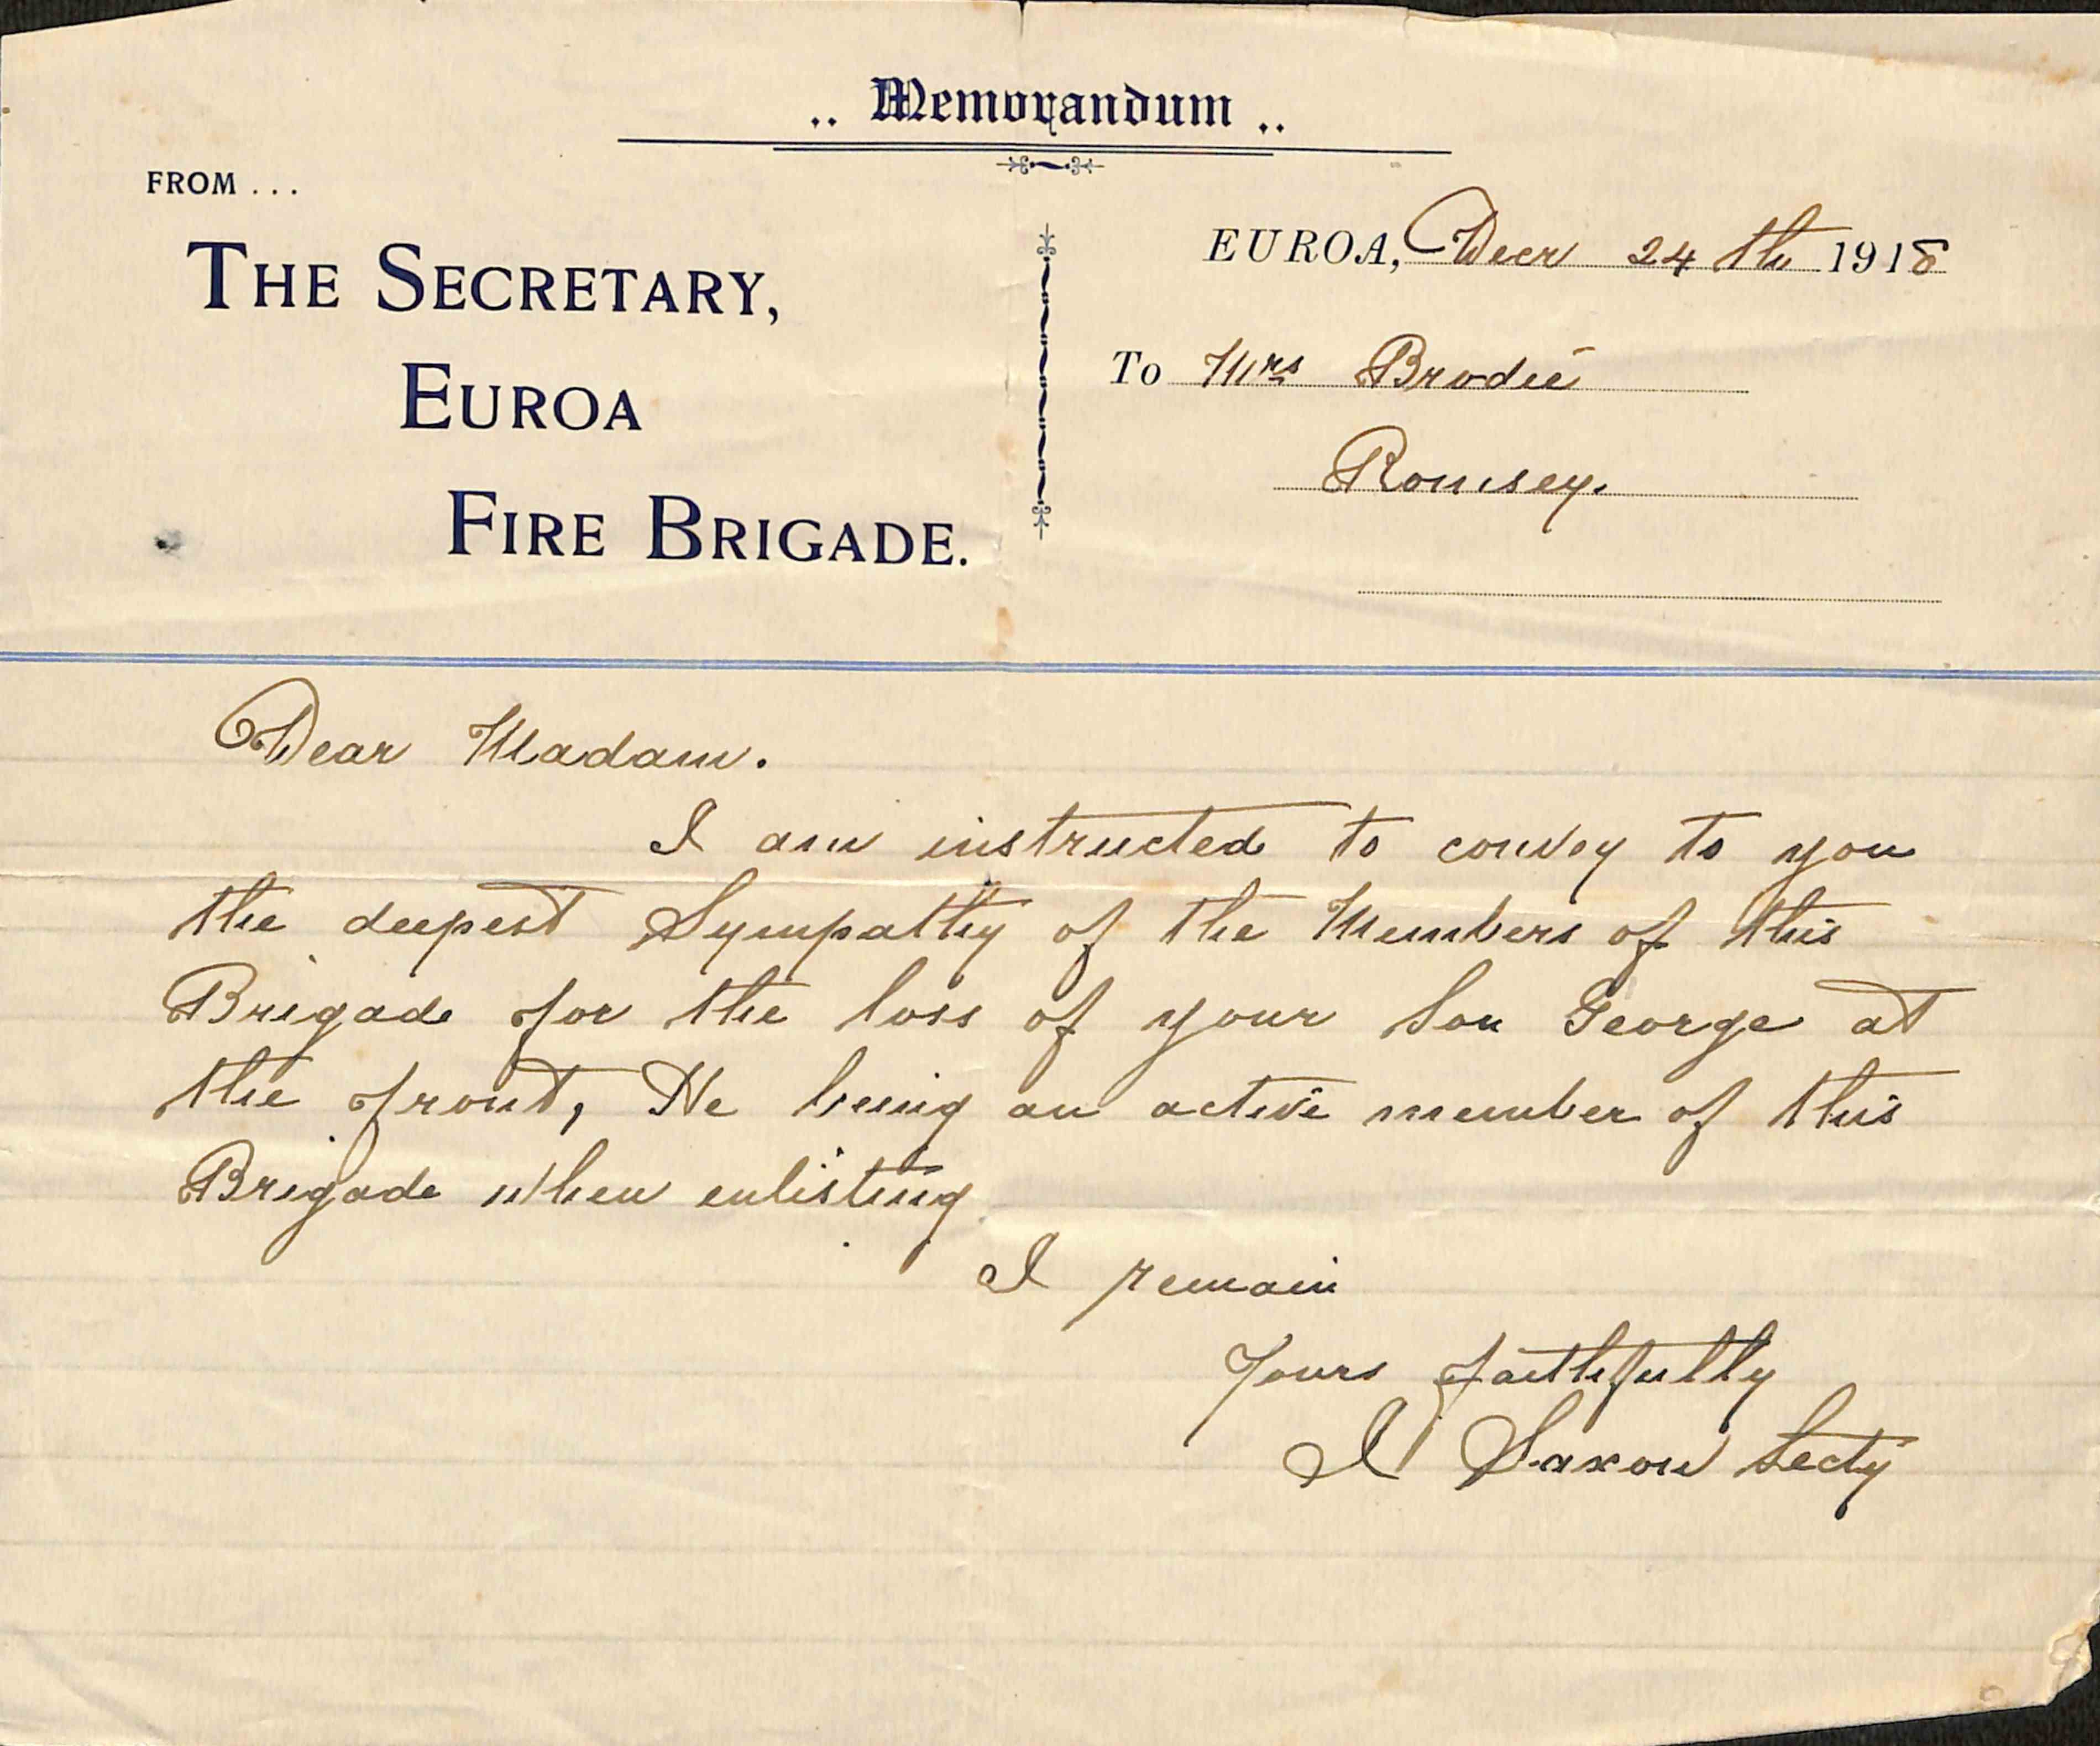 .. Memorandum ..
FROM ...
THE SECRETARY,
EUROA
FIRE BRIGADE.
EUROA, Decr 24th 1918
To Mrs Brodie
Romsey.
Dear Madam.
I am instructed to convey to you
the deepest Sympathy of the Members of this
Brigade for the loss of your Son George at
the front, He being an active member of this
Brigade when enlisting
I remain
Yours faithfully
I Saxon Secty